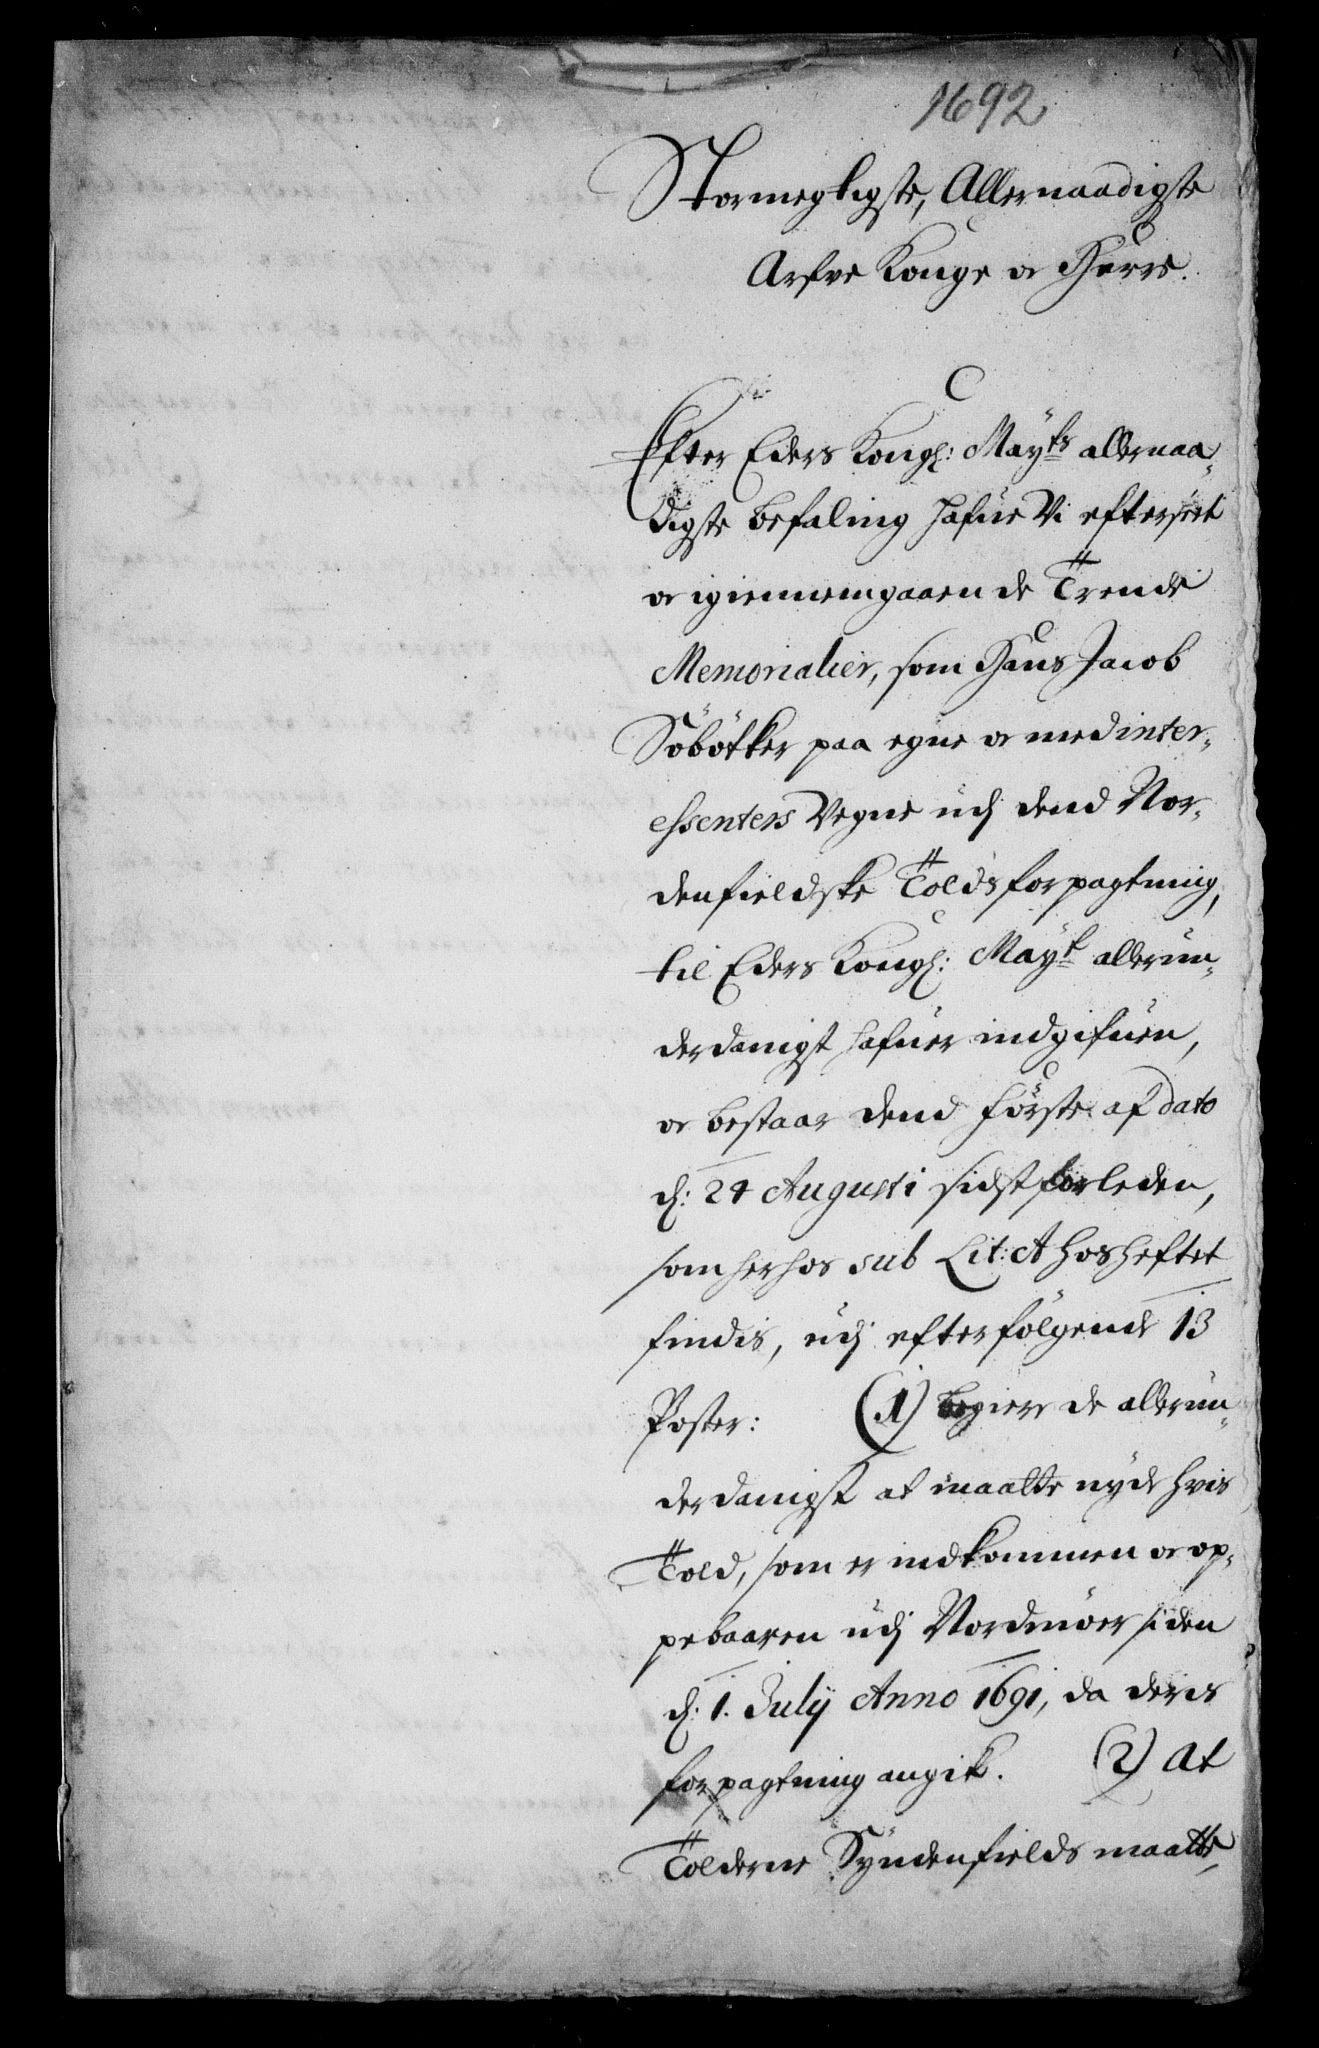 1692
Stormegtigste, Allernaadigste
Arfve Konge oc Herre.
Efter Eders Kongl: Mayts allernaa-
digste befaling hafue Vi efterseet
oc igiennemgaaen de Trende
Memorialier, som Hans Jacob
Söbötker paa egne oc med inter-
essenters Vegne udj dend Nor-
denfieldske Toldsforpagtning,
til Eders Kongl: Mayt allerun-
derdanigst hafuer indgifuen,
oc bestaar dend förste af dato
d: 24 Augusti sidst forleden,
som herhos sub Lit: A hosheftet
findis, udj efterfölgende 13
Poster: (1) begiere de allerun-
derdanigst at maatte nyde hvis
Told, som er indkommen oc op-
pebaaren udj Nordmöer siden
d: 1. Julij Anno 1691, da deris
forpagtning angik. (2) At
Tolderne Syndenfields maatte